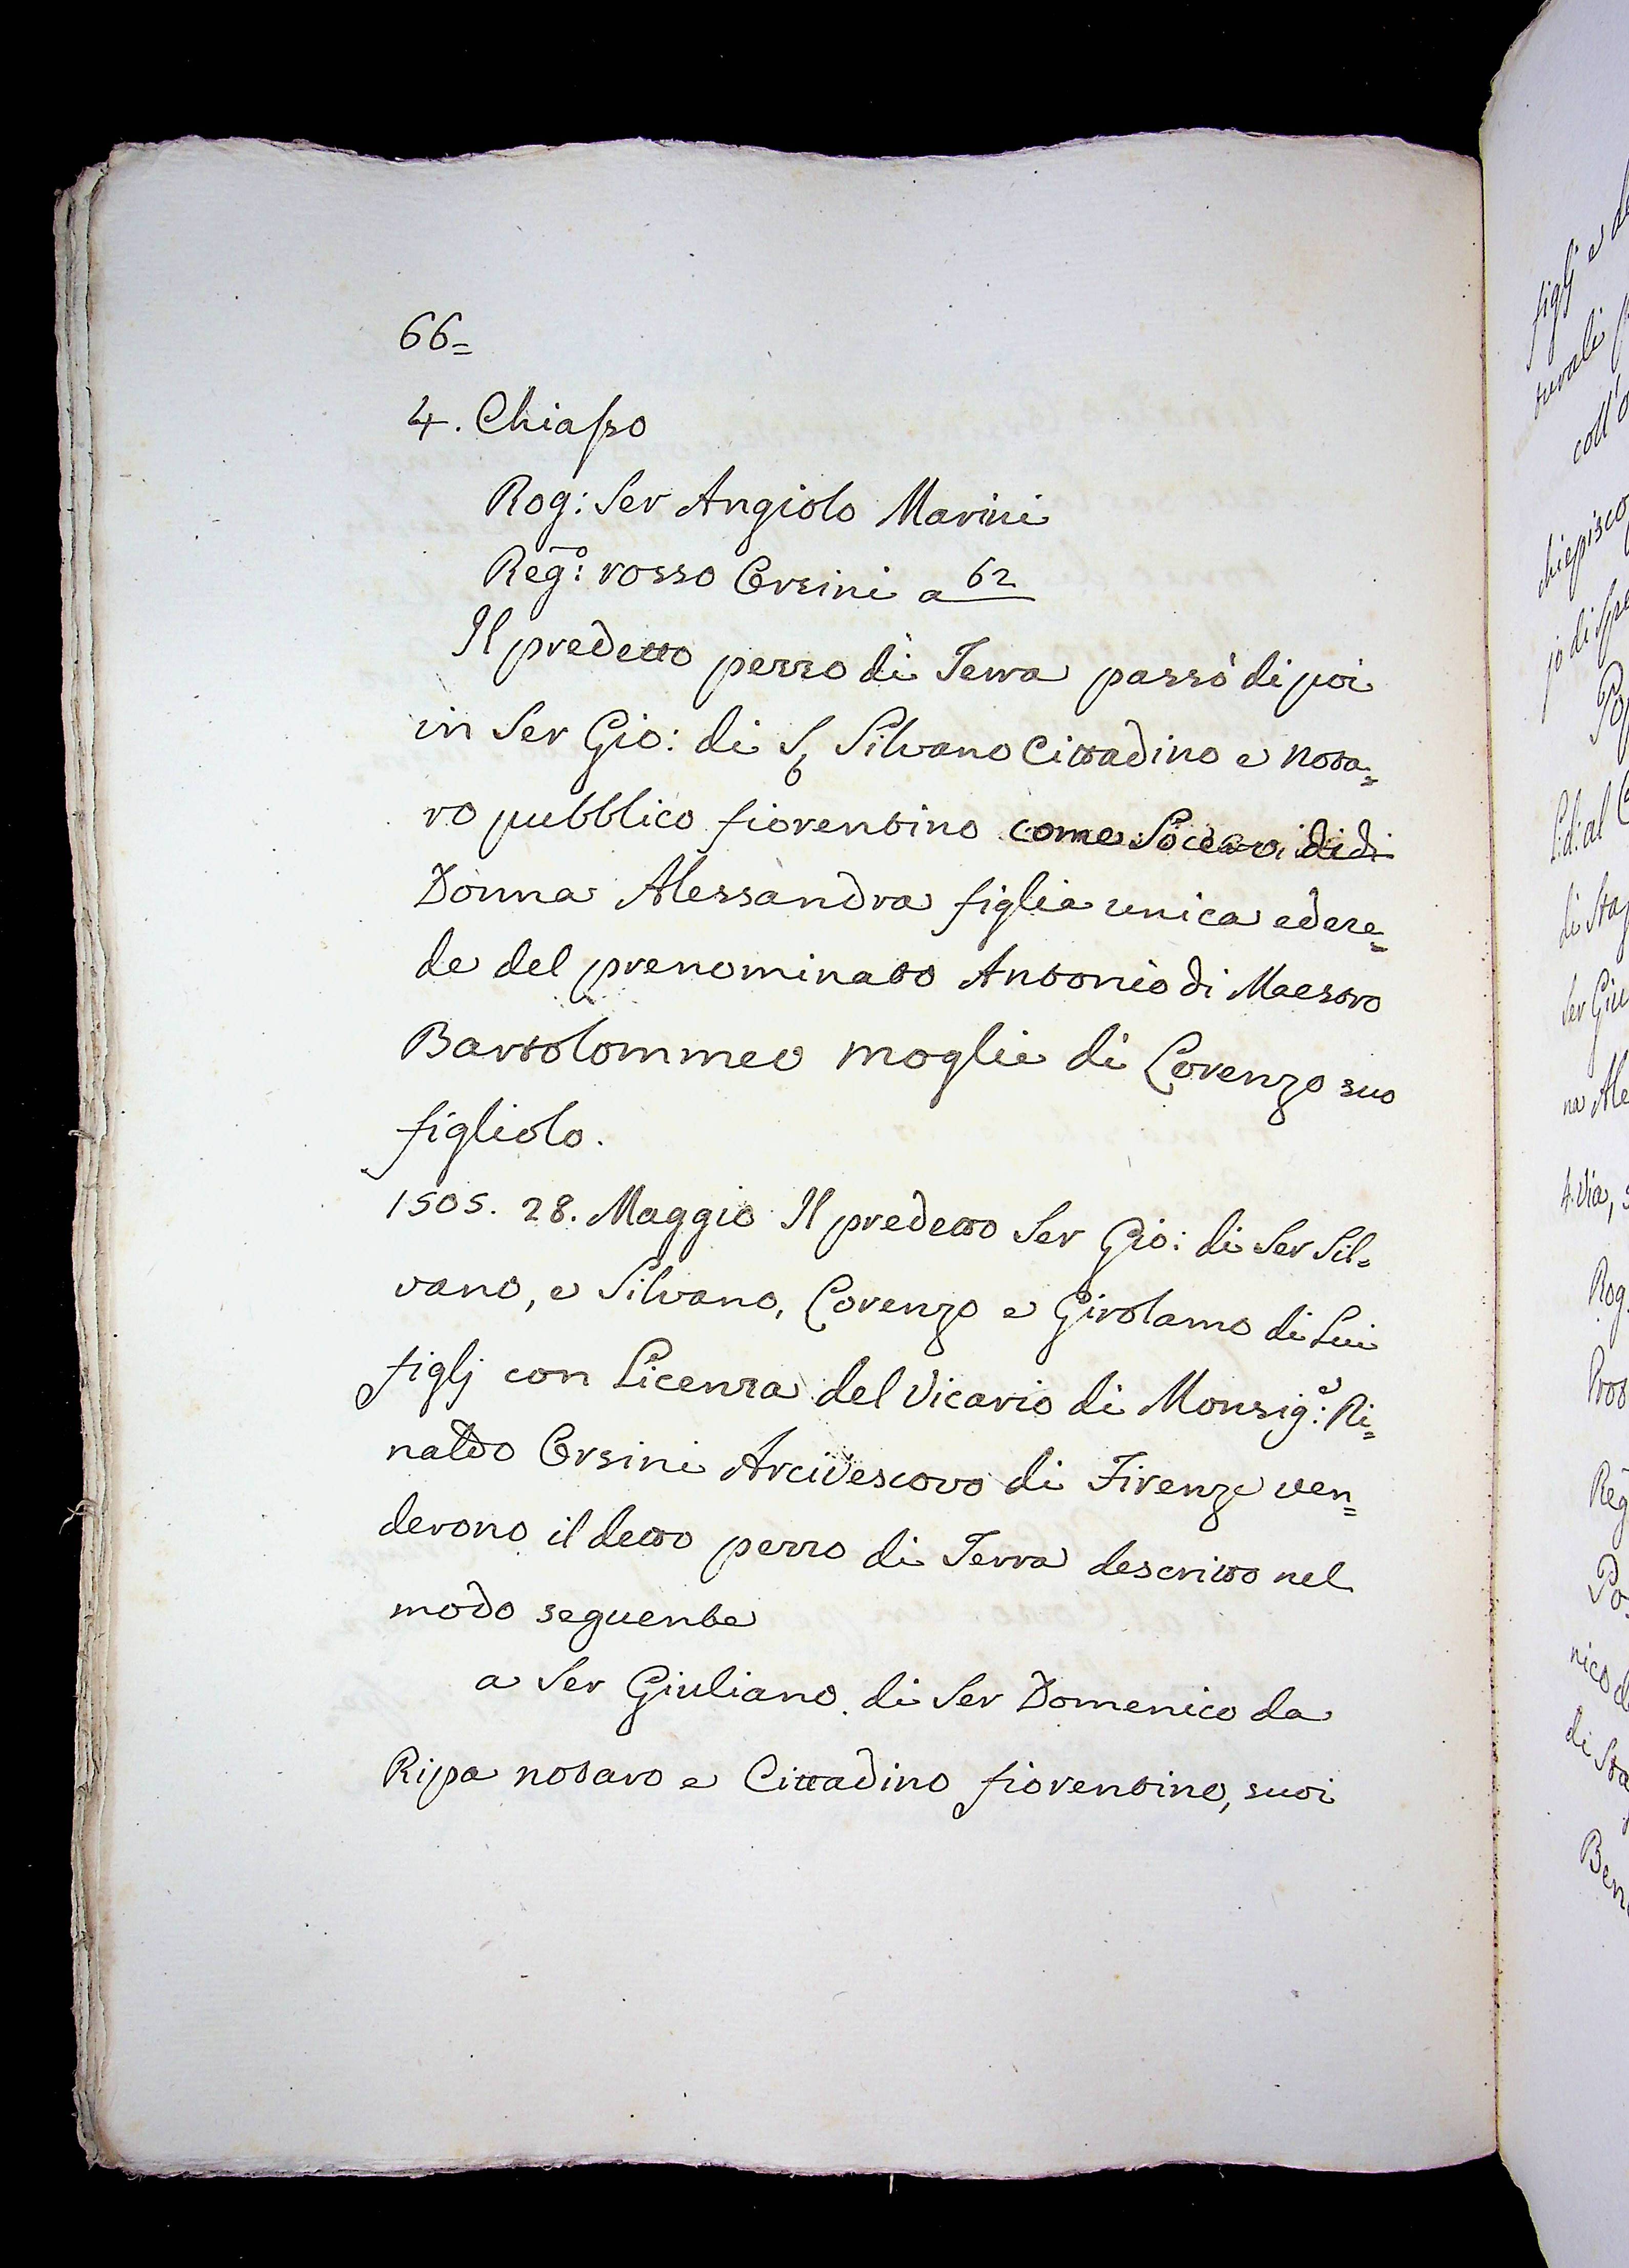 66=
4. Chiasso
Rog: Ser Angiolo Marini
Reg:º rosso Orsini a 62
Il predetto pezzo di Terra passò di poi
in Ser Gio: di S. Silvano Cittadino e nota=
ro pubblico fiorentino come Socero di di
Donna Alessandra figlia unica ed ere=
de del prenominato Antonio di Maestro
Bartolommeo moglie di Lorenzo suo
figliolo.
1505. 28. Maggio Il predetto Ser Gio: di Ser Sil=
vano, e Silvano, Lorenzo e Girolamo di Lui
figlj con Licenza del Vicario di Monsig:e Ri=
naldo Orsini Arcivescovo di Firenze ven=
derono il detto pezzo di Terra descritto nel
modo seguente
a Ser Giuliano di Ser Domenico da
Ripa notaro e Cittadino fiorentino, suoi
figlj e
coll'
chiepisco
Po
L:d: al
di Sta
Ser Giu
na Ale
4. Via,
Rog.
Reg
Po.
nico d
di Sta
Ben